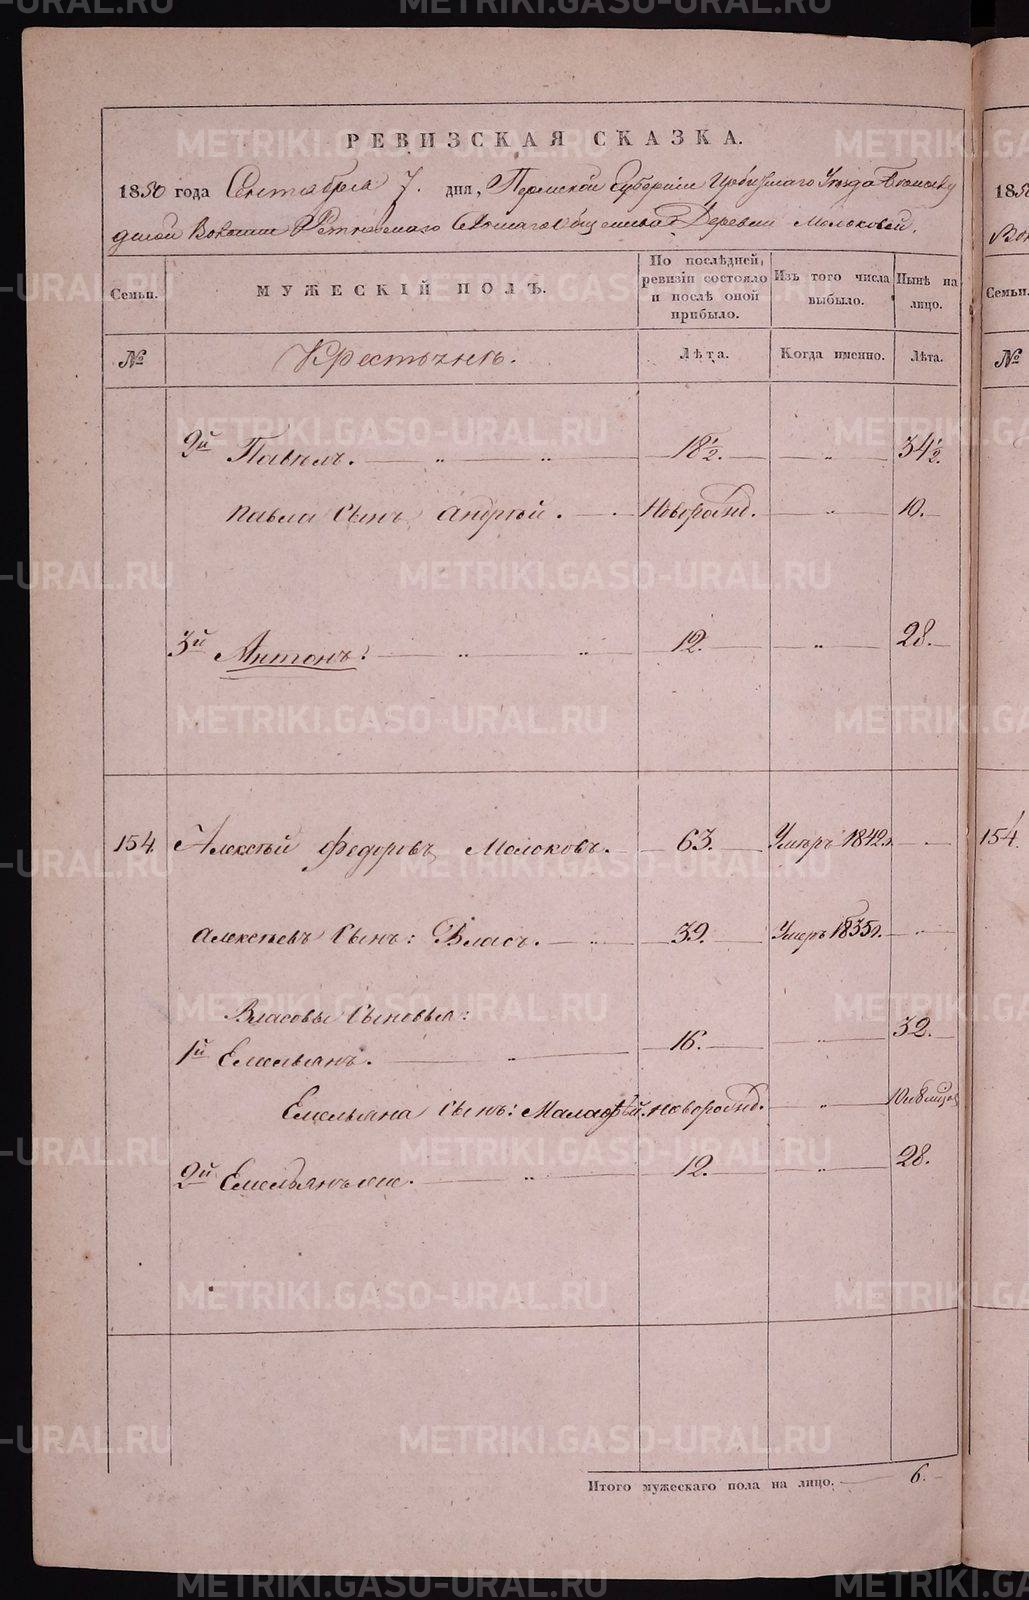 РЕВИЗСКАЯ СКАЗКА.
1850 года Сентября 7. дня, Пермской Губернии Ирбитскаго Уезда
Волости Сельскаго Общества Деревни Молоковой.
Семьи.
МУЖЕСКІЙ ПОЛЪ.
По послѣдней ревизіи состояло и послѣ оной прибыло.
Изъ того числа выбыло.
Нынѣ на лицо.
№
Крестьяне.
Лѣта.
Когда именно.
Лѣта.
2й Павелъ. 18½. 34½.
Павла Сынъ Андрей. Новорожд. 10.
3й Антонъ. 12. 28.
154. Алексѣй Федоровъ Молоковъ. 63. Умеръ 1842г.
Алексѣевъ Сынъ: Власъ. 39. Умеръ 1835г.
Власовы Сыновья:
1й Емельянъ. 16. 32.
Емельяна Сынъ: Малафѣй. новорожд.
2й Емельянъ же. 12. 28.
Итого мужескаго пола на лицо. 6.
1850
Семьи.
№
154.
METRIKI.GASO-URAL.RU